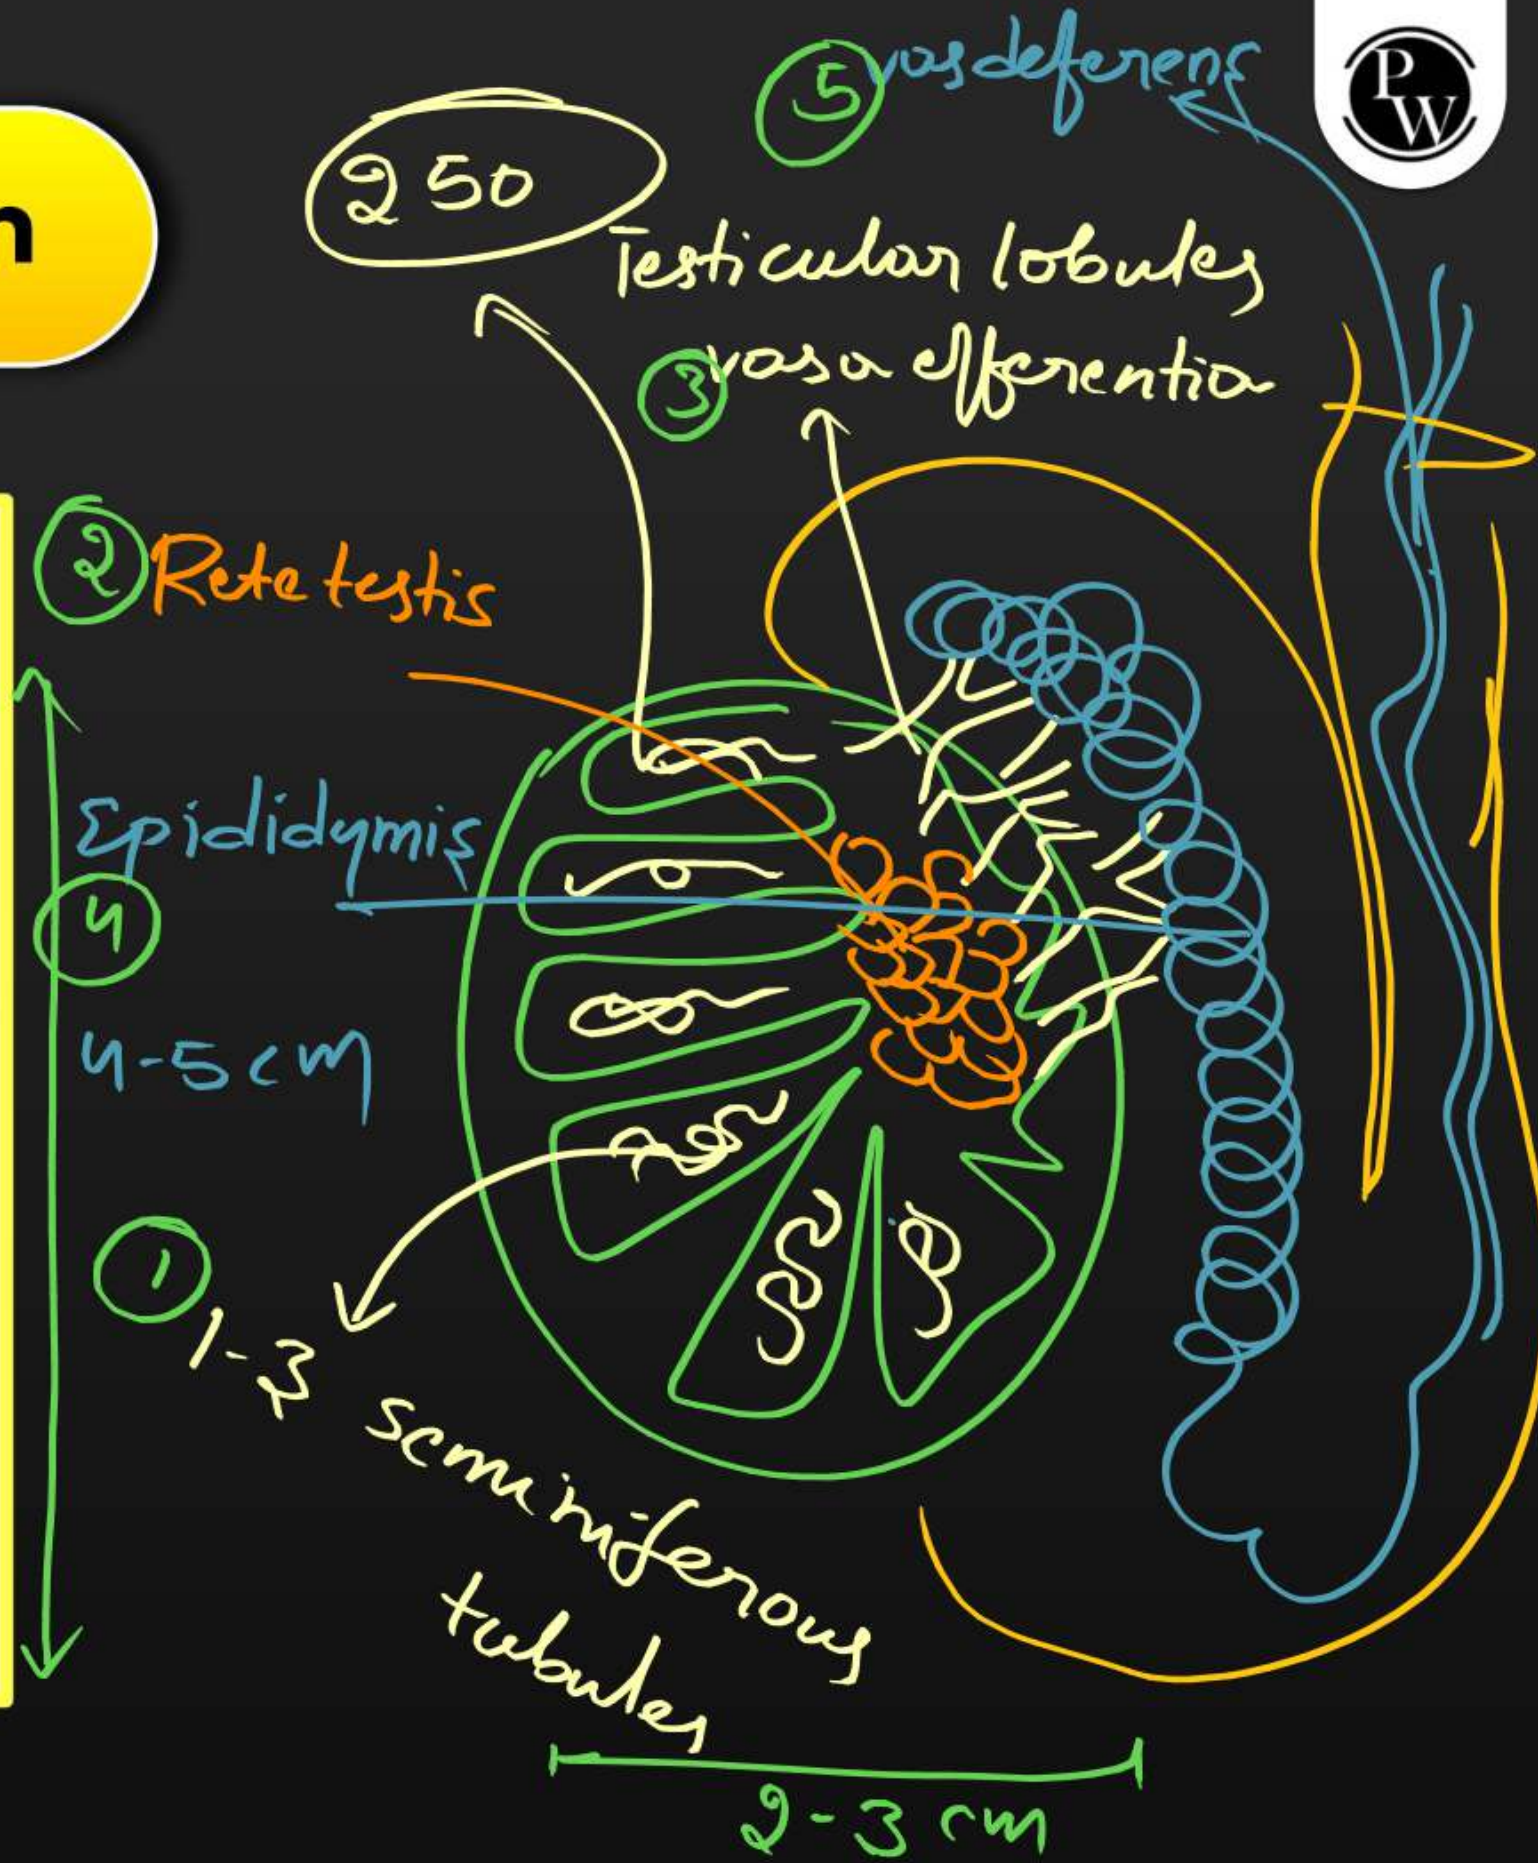 n
PW
5 vas deferens
250
Testicular lobules
3 vasa efferentia
2 Rete testis
Epididymis
4
4-5 cm
1
1-3 seminiferous
tubules
2-3 cm